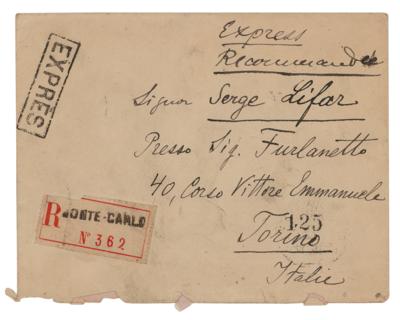 Express
Recommandée
EXPRÈS
Signor Serge Lifar
Presso Sig. Furlanetto
40, Corso Vittore Emmanuele
R MONTE-CARLO
Nº 362
125
Torino
Italie